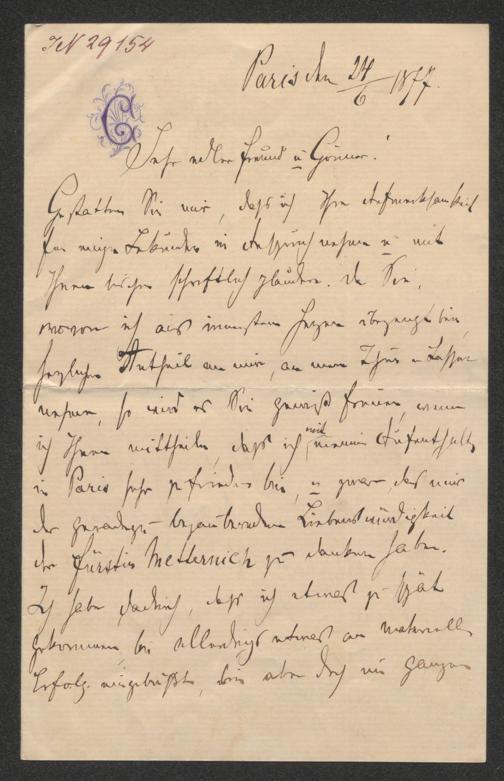 IN 29154
Paris den 24/6 1877.
C
Sehr edler Freund u Gönner!
Gestatten Sie mir, daß ich Ihre Aufmerksamkeit
für einige Sekunden in Anspruch nehme u mit
Ihnen bischen schriftlich plaudere. Da Sie,
wovon ich aus innerstem Herzen überzeugt bin,
herzlichen Antheil an mir, an mein Thun u Lassen
nehmen, so wird es Sie gewiß freuen, wenn
ich Ihnen mittheile, daß ich mit meinem Aufenthalte
in Paris sehr zufrieden bin, u zwar, das nur
der geradezu bezaubernden Liebenswürdigkeit
der Fürstin Metternich zu danken habe.
Ich habe dadurch, daß ich etwas zu spät
gekommen bin allerdings etwas an materiellem
Erfolg eingebüßt, bin aber doch im ganzen